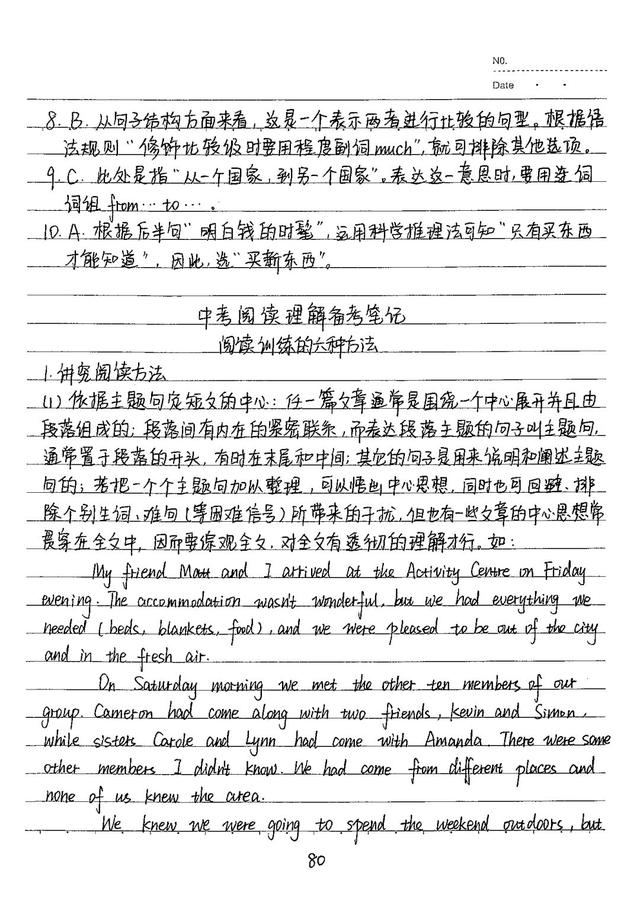 No.
Date
8. B. 从句子结构方面来看，这是一个表示两者进行比较的句型。根据语
法规则“修饰比较级时要用程度副词much”，就可排除其他选项。
9. C. 此处是指“从一个国家，到另一个国家”。表达这一意思时，要用连词
词组 from…to…。
10. A. 根据后半句“明白钱的时髦”，运用科学推理法可知“只有买东西
才能知道”，因此，选“买新东西”。
中考阅读理解备考笔记
阅读训练的六种方法
1. 讲究阅读方法
(1) 依据主题句定短文的中心：任一篇文章通常是围绕一个中心展开并且由
段落组成的；段落间有内在的紧密联系，而表达段落主题的句子叫主题句，
通常置于段落的开头，有时在末尾和中间；其它的句子是用来说明和阐述主题
句的；若把一个个主题句加以整理，可以悟出中心思想，同时也可回避、排
除个别生词、难句（等困难信号）所带来的干扰，但也有一些文章的中心思想常
贯穿在全文中，因而要综观全文，对全文有透彻的理解才行。如：
My friend Matt and I arrived at the Activity Centre on Friday
evening. The accommodation wasn't wonderful, but we had everything we
needed (beds, blankets, food), and we were pleased to be out of the city
and in the fresh air.
On Saturday morning we met the other ten members of our
group. Cameron had come along with two friends, Kevin and Simon,
while sisters Carole and Lynn had come with Amanda. There were some
other members I didn't know. We had come from different places and
none of us knew the area.
We knew we were going to spend the weekend outdoors, but
80